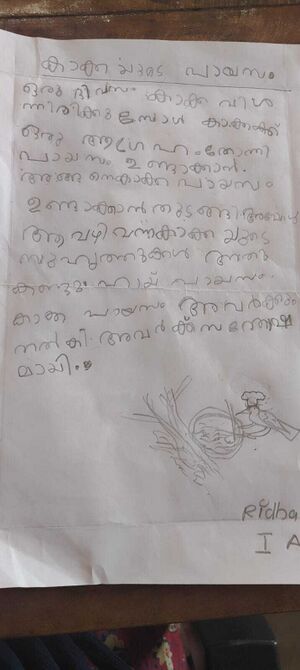 കാക്കയുടെ പായസം
ഒരു ദിവസം കാക്ക വിശ
ന്നിരിക്കുമ്പോൾ കാക്കക്ക്
ഒരു ആഗ്രഹം തോന്നി
പായസം ഉണ്ടാക്കാൻ.
അങ്ങനെ കാക്ക പായസം
ഉണ്ടാക്കാൻ തുടങ്ങി അപ്പോൾ
ആ വഴി വന്ന കാക്കയുടെ
സുഹൃത്തുക്കൾ അതു
കണ്ടു ഹായ് പായസം.
കാക്ക പായസം അവർക്കും
നൽകി. അവർക്ക് സന്തോഷ
മായി.
Ridha
I A